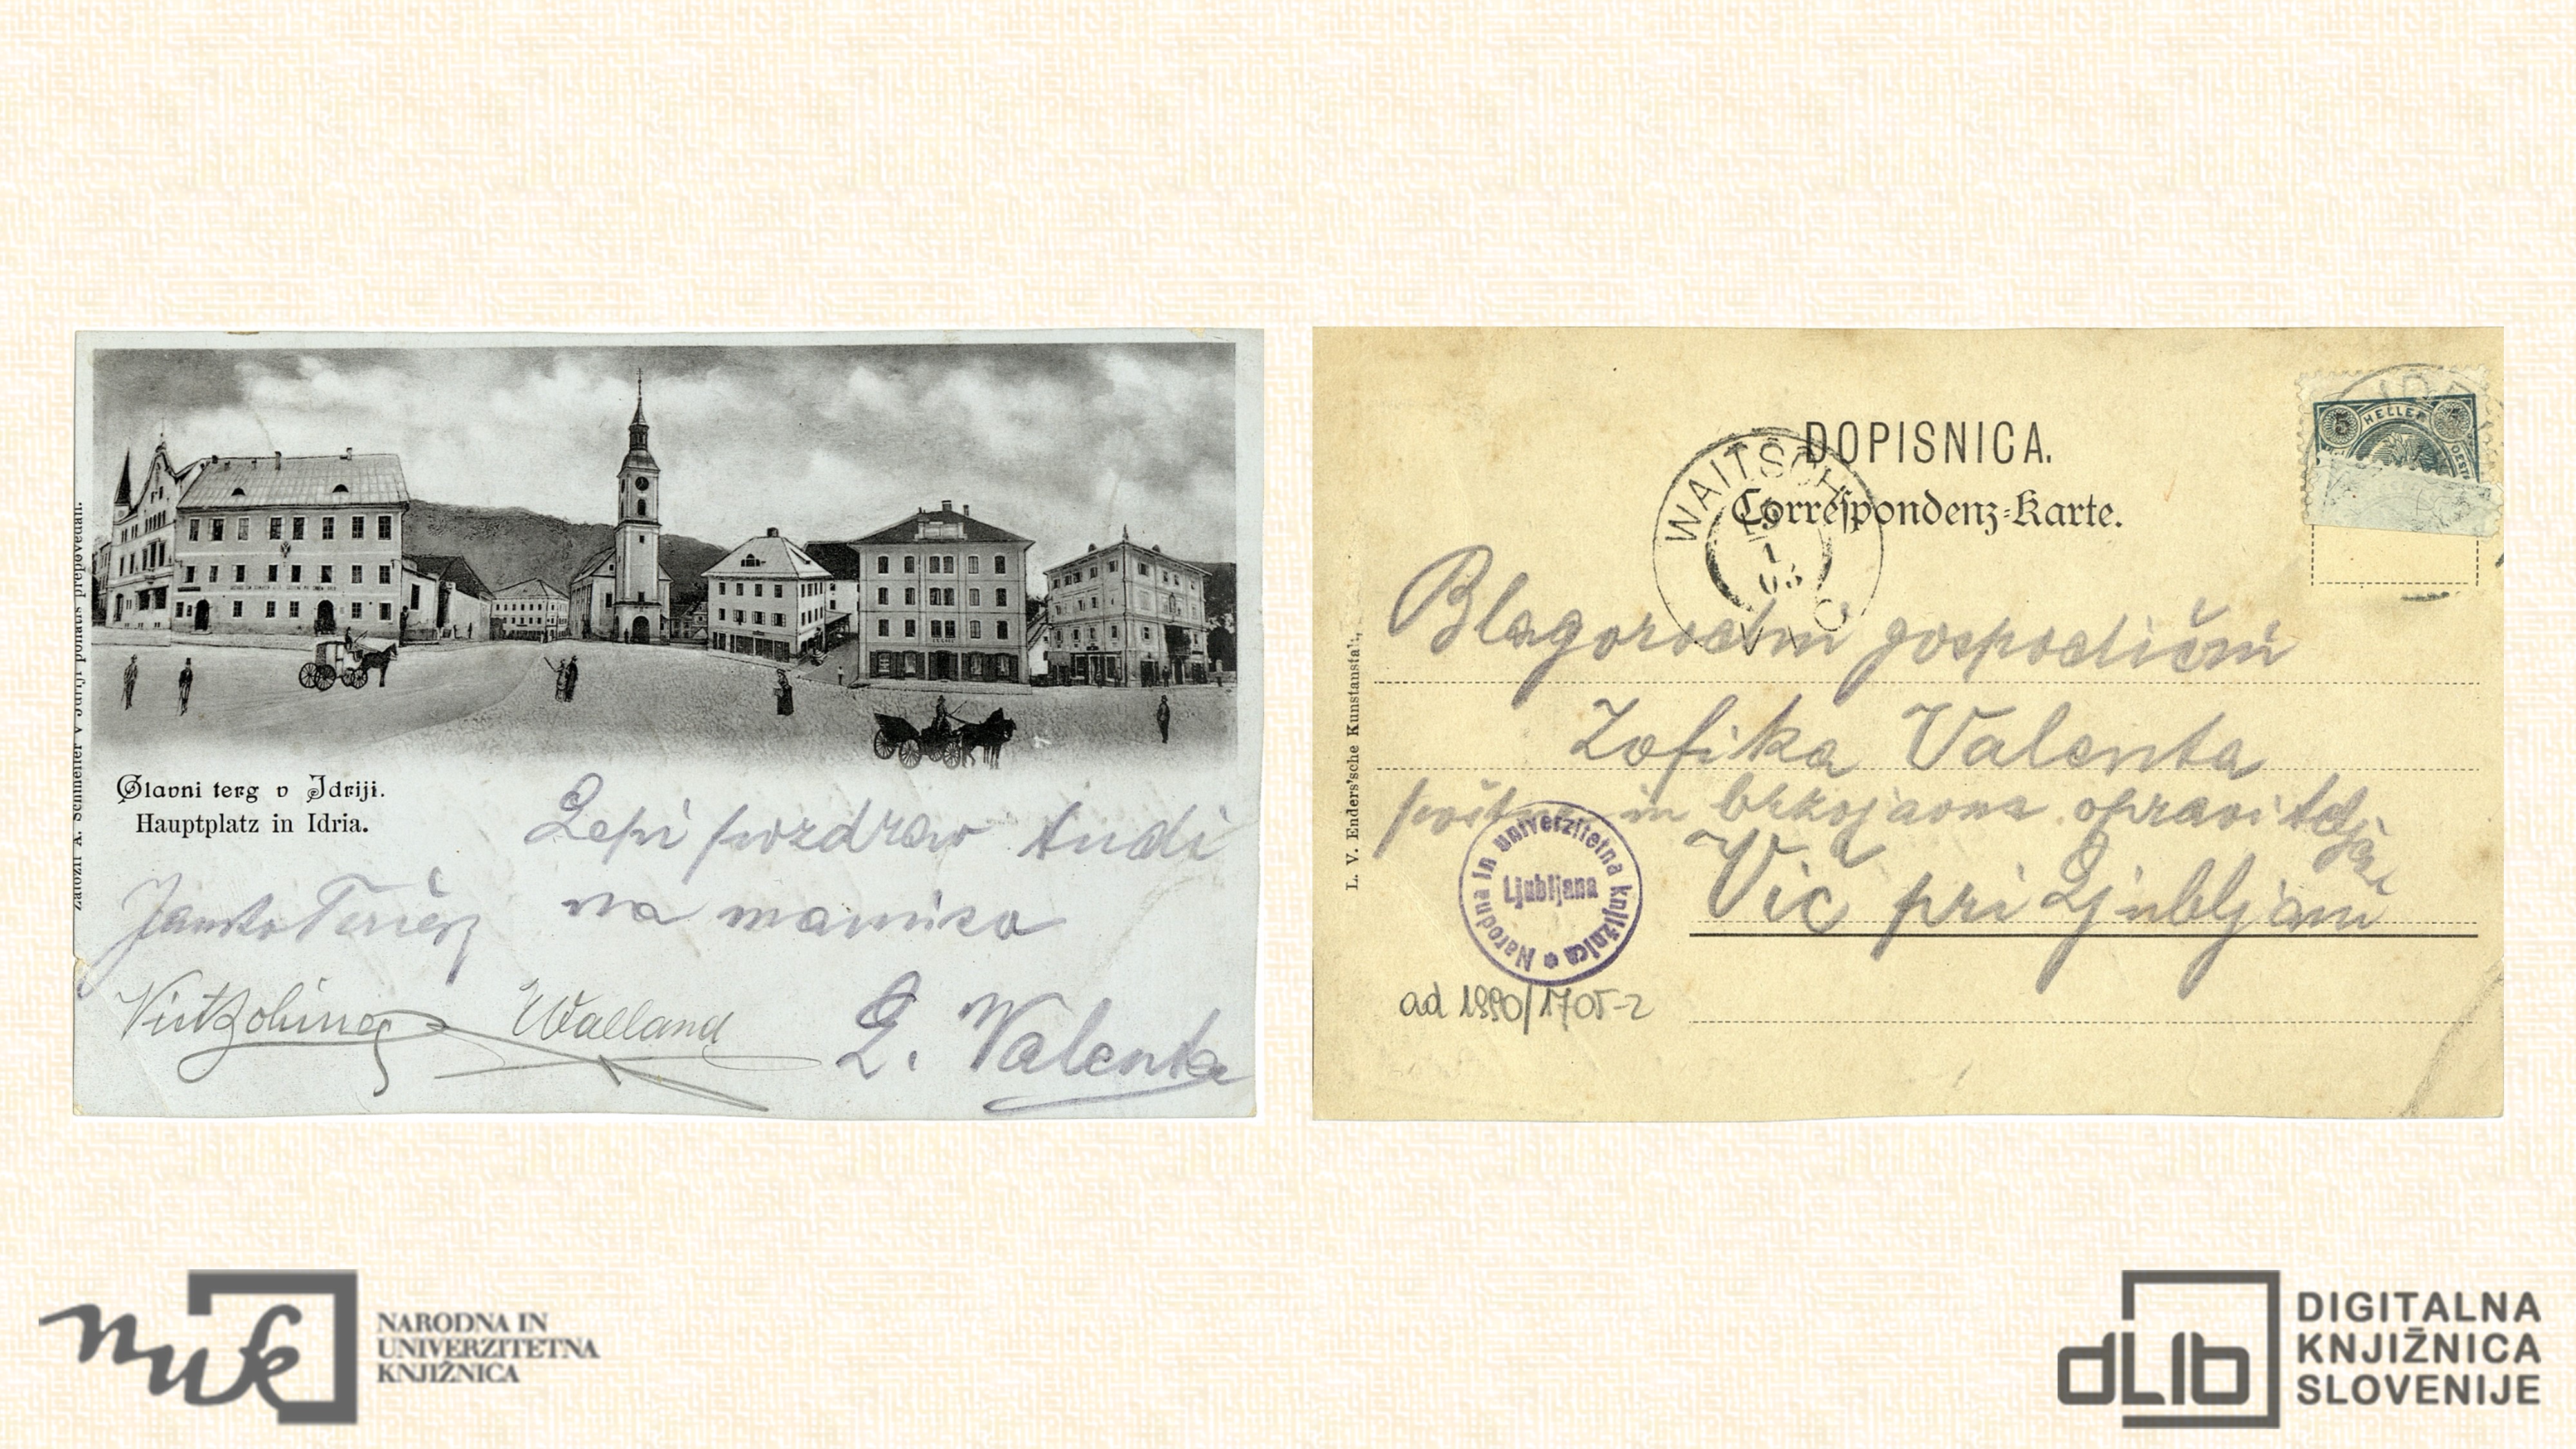 Založil A. Schmeller v Idriji ponatis prepovedan.
Glavni terg v Idriji.
Hauptplatz in Idria.
Lepi pozdrav tudi
na mamico
Janko
Walland
L. Valenta
DOPISNICA.
Correspondenz-Karte.
WAITSCH
VIČ
1
03
5 HELLER
L. V. Enders'sche Kunstanstalt,
Blagorodni gospodični
Zofika Valenta
poštna in brzojavna opraviteljica
Vič pri Ljubljani
Narodna in univerzitetna knjižnica
Ljubljana
ad 1990/1705-2
nuk
NARODNA IN
UNIVERZITETNA
KNJIŽNICA
dLib
DIGITALNA
KNJIŽNICA
SLOVENIJE